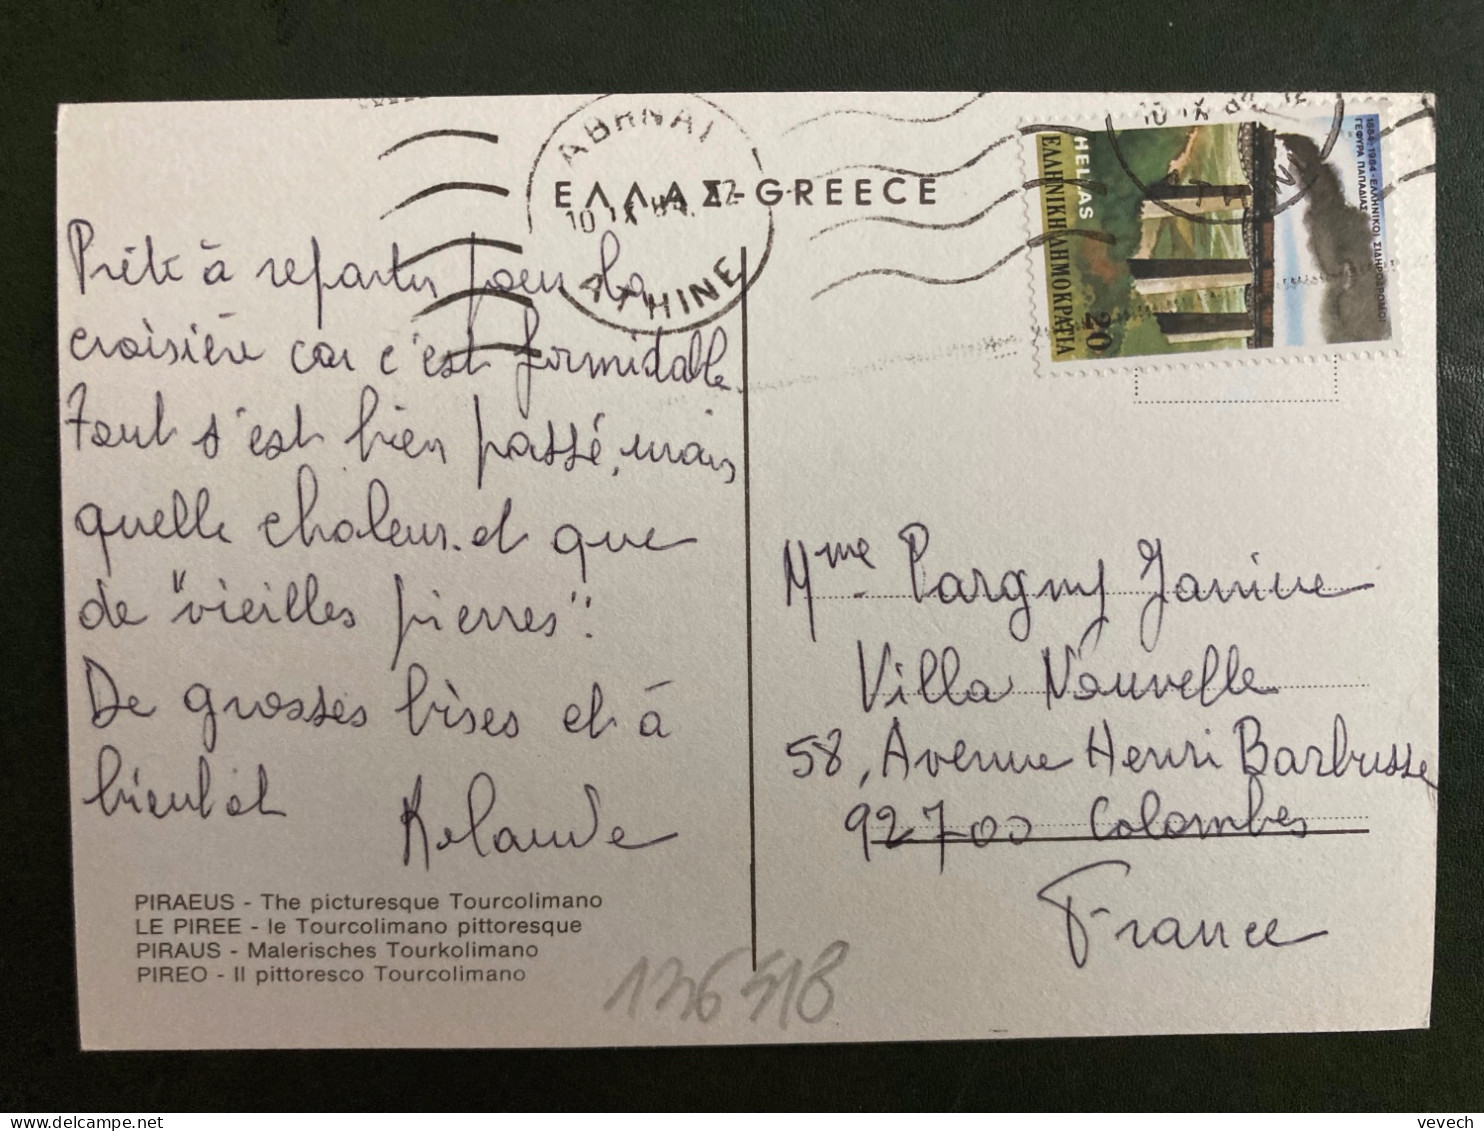 ΕΛΛΑΣ-GREECE
ΑΘΗΝΑΙ
10 IX 84. 12
ATHINE
HELAS
ΕΛΛΗΝΙΚΗ ΔΗΜΟΚΡΑΤΙΑ
20
1884-1984 - ΕΛΛΗΝΙΚΟΙ ΣΙΔΗΡΟΔΡΟΜΟΙ
ΓΕΦΥΡΑ ΠΑΠΑΔΙΑΣ
10 IX 84 12
Prête à repartir pour la
croisière car c'est formidable.
Tout s'est bien passé, mais
quelle chaleur. et que
de "vieilles pierres".
De grosses bises et à
bientôt
Mme Pargny Janine
Villa Nouvelle
58, Avenue Henri Barbusse
92700 Colombes
France
PIRAEUS - The picturesque Tourcolimano
LE PIREE - le Tourcolimano pittoresque
PIRAUS - Malerisches Tourkolimano
PIREO - Il pittoresco Tourcolimano
136518
vevech